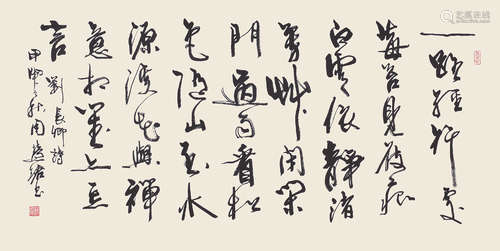 一路經行處
莓苔見履痕
白雲依靜渚
芳艸閉閑
門過雨看松
色隨山到水
源溪花與禪
意相對亦忘
言
劉長卿詩
甲申之秋周慧珺書